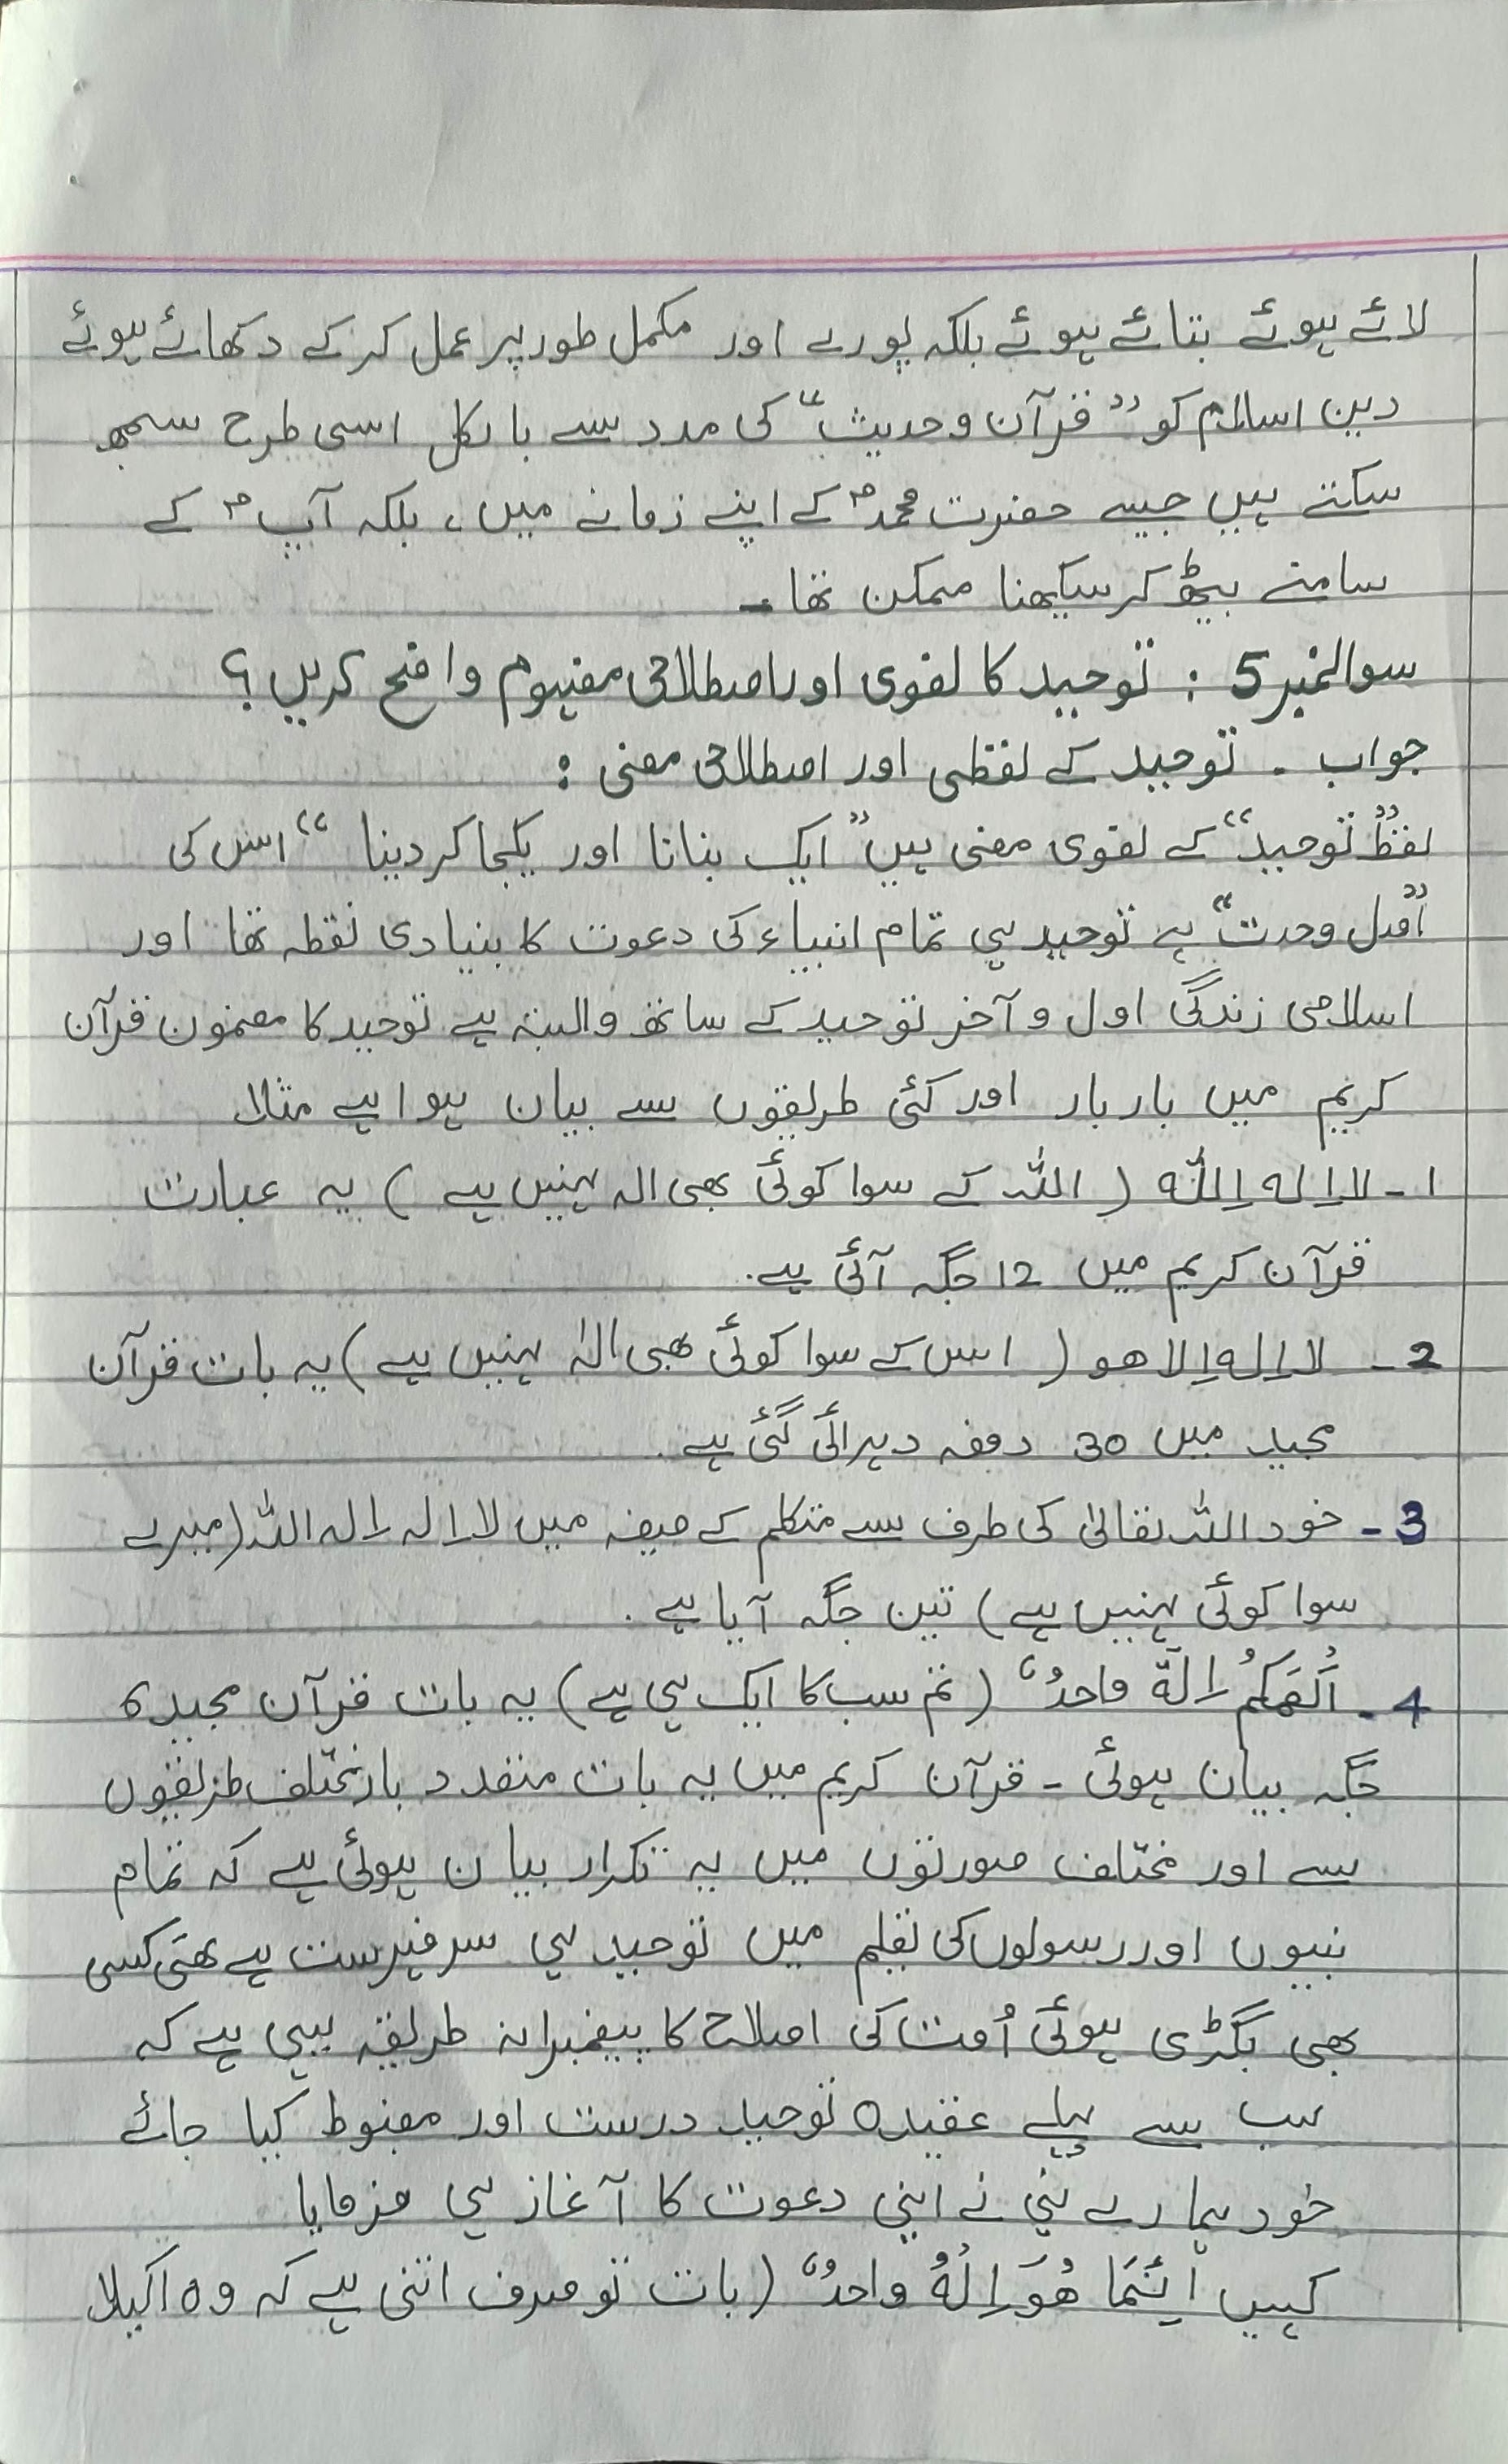 لائے ہوئے بتائے ہوئے بلکہ پورے اور مکمل طور پر عمل کر کے دکھائے ہوئے
دین اسلام کو "قرآن و حدیث" کی مدد سے بالکل اسی طرح سمجھ
سکتے ہیں جیسے حضرت محمدؐ کے اپنے زمانے میں، بلکہ آپؐ کے
سامنے بیٹھ کر سیکھنا ممکن تھا۔
سوال نمبر 5 : توحید کا لغوی اور اصطلاحی مفہوم واضح کریں؟
جواب ۔ توحید کے لفظی اور اصطلاحی معنی :
لفظ "توحید" کے لغوی معنی ہیں "ایک بنانا اور یکجا کر دینا" اس کی
"اصل وحدت" ہے توحید ہی تمام انبیاء کی دعوت کا بنیادی نقطہ تھا اور
اسلامی زندگی اول و آخر توحید کے ساتھ وابستہ ہے توحید کا مضمون قرآن
کریم میں بار بار اور کئی طریقوں سے بیان ہوا ہے مثلا
1 - لا اِله اِللّٰه ( اللّٰہ کے سوا کوئی بھی الہ نہیں ہے ) یہ عبارت
قرآن کریم میں 12 جگہ آئی ہے۔
2 - لا اِله اِلا هو ( اس کے سوا کوئی بھی الٰہ نہیں ہے ) یہ بات قرآن
مجید میں 30 دفعہ دہرائی گئی ہے۔
3 - خود اللّٰہ تعالیٰ کی طرف سے متکلم کے صیغہ میں لا الہ الہ اللّٰہ (میرے
سوا کوئی نہیں ہے) تین جگہ آیا ہے۔
4 - اَلَهَكُمُ اِلٰهٌ وَاحِدٌ (تم سب کا ایک ہی ہے) یہ بات قرآن مجید 6
جگہ بیان ہوئی - قرآن کریم میں یہ بات متعدد بار مختلف طریقوں
سے اور مختلف صورتوں میں بہ تکرار بیان ہوئی ہے کہ تمام
نبیوں اور رسولوں کی تعلیم میں توحید ہی سرفہرست ہے بھی کسی
بھی بگڑی ہوئی اُمت کی اصلاح کا پیغمبرانہ طریقہ یہی ہے کہ
سب سے پہلے عقیدہ توحید درست اور مضبوط کیا جائے
خود ہمارے نبی نے اپنی دعوت کا آغاز ہی فرمایا
کہیں اِنَّمَا هُوَ اِلٰهُ وَاحِدٌ (بات تو صرف اتنی ہے کہ وہ اکیلا